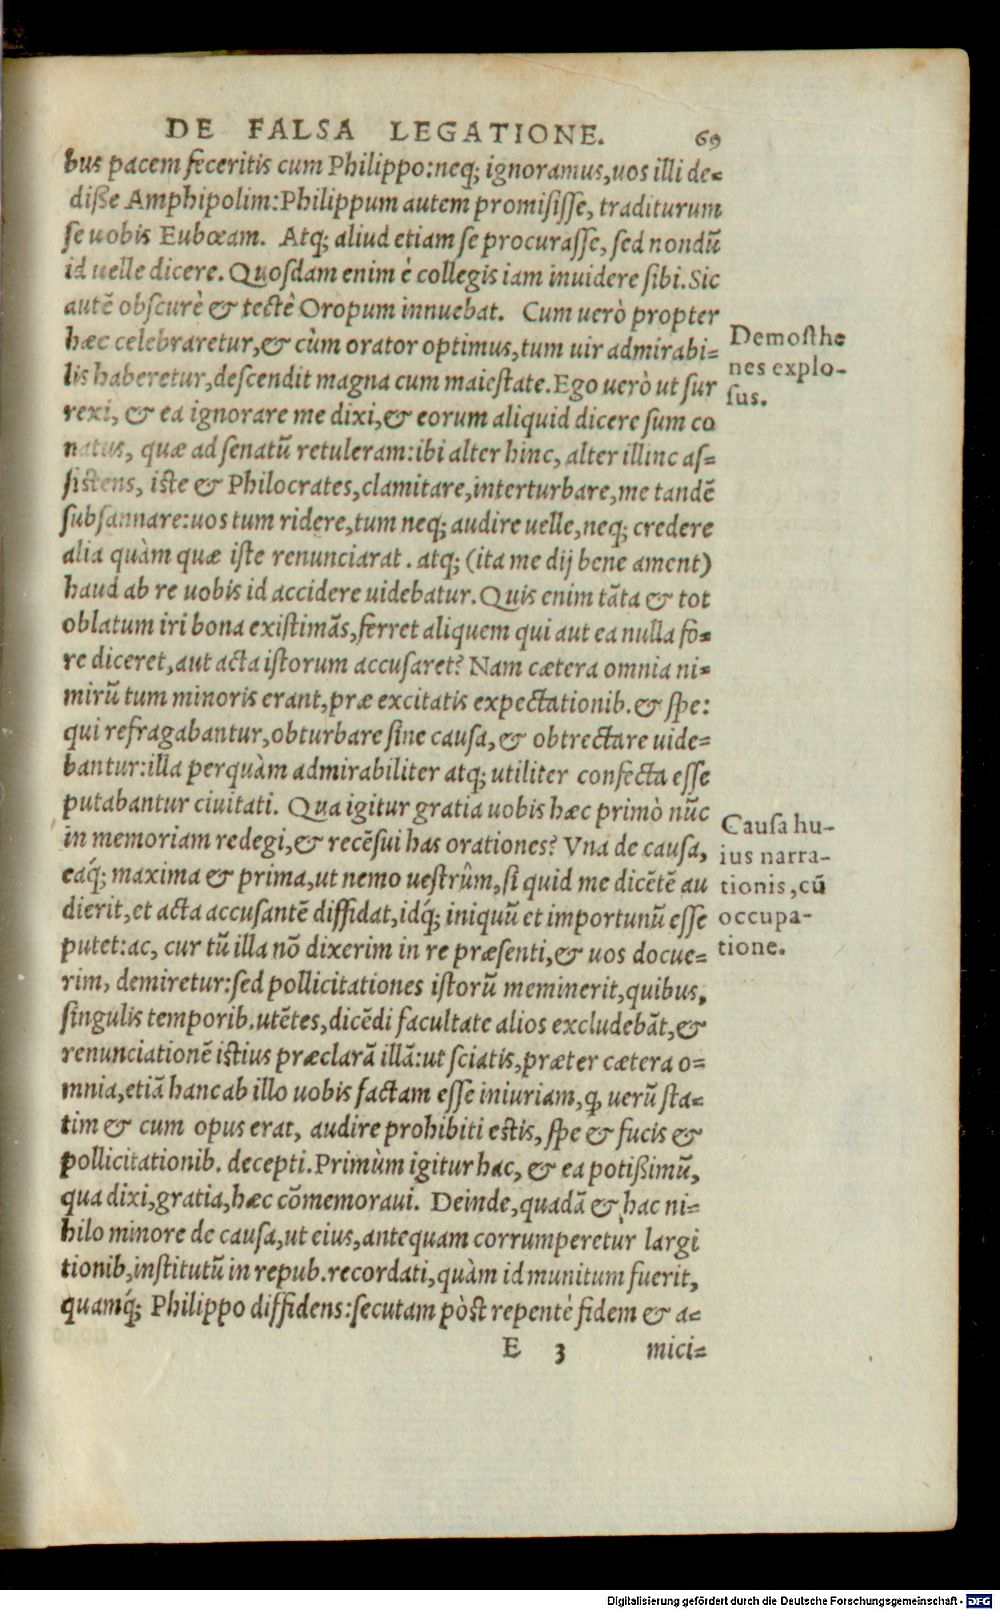 DE FALSA LEGATIONE. 69
bus pacem feceritis cum Philippo:neq; ignoramus,uos illi de=
diße Amphipolim:Philippum autem promisisse, traditurum
se uobis Eubœam. Atq; aliud etiam se procurasse, sed nondũ
id uelle dicere. Quosdam enim è collegis iam inuidere sibi. Sic
autẽ obscurè & tectè Oropum innuebat. Cum uerò propter
hæc celebraretur,& cùm orator optimus,tum uir admirabi=
lis haberetur,descendit magna cum maiestate. Ego uerò ut sur
rexi, & ea ignorare me dixi,& eorum aliquid dicere sum co
natus, quæ ad senatũ retuleram:ibi alter hinc, alter illinc as=
sistens, iste & Philocrates,clamitare,interturbare,me tandẽ
subsannare:uos tum ridere,tum neq; audire uelle,neq; credere
alia quàm quæ iste renunciarat. atq; (ita me dij bene ament)
haud ab re uobis id accidere uidebatur. Quis enim tãta & tot
oblatum iri bona existimãs,ferret aliquem qui aut ea nulla fo=
re diceret,aut acta istorum accusaret? Nam cætera omnia ni=
mirũ tum minoris erant,præ excitatis expectationib.& spe:
qui refragabantur,obturbare sine causa,& obtrectare uide=
bantur:illa perquàm admirabiliter atq; utiliter confecta esse
putabantur ciuitati. Qua igitur gratia uobis hæc primò nũc
in memoriam redegi,& recẽsui has orationes? Vna de causa,
eaq́; maxima & prima,ut nemo uestrûm,si quid me dicẽtẽ au
dierit,et acta accusantẽ diffidat,idq́; iniquũ et importunũ esse
putet:ac, cur tũ illa nõ dixerim in re præsenti,& uos docue=
rim, demiretur:sed pollicitationes istorũ meminerit,quibus,
singulis temporib.utẽtes,dicẽdi facultate alios excludebãt,&
renunciationẽ istius præclarã illã:ut sciatis,præter cætera o=
mnia,etiã hanc ab illo uobis factam esse iniuriam,ꝙ uerũ sta=
tim & cum opus erat, audire prohibiti estis, spe & fucis &
pollicitationib. decepti. Primùm igitur hac, & ea potißimũ,
qua dixi,gratia,hæc cõmemoraui. Deinde,quadã & hac ni=
hilo minore de causa,ut eius,antequam corrumperetur largi
tionib,institutũ in repub.recordati,quàm id munitum fuerit,
quamq́; Philippo diffidens:secutam pòst repentè fidem & a=
E 3 mici=
Demosthe
nes explo-
sus.
Causa hu-
ius narra-
tionis,cũ
occupa-
tione.
Digitalisierung gefördert durch die Deutsche Forschungsgemeinschaft - DFG